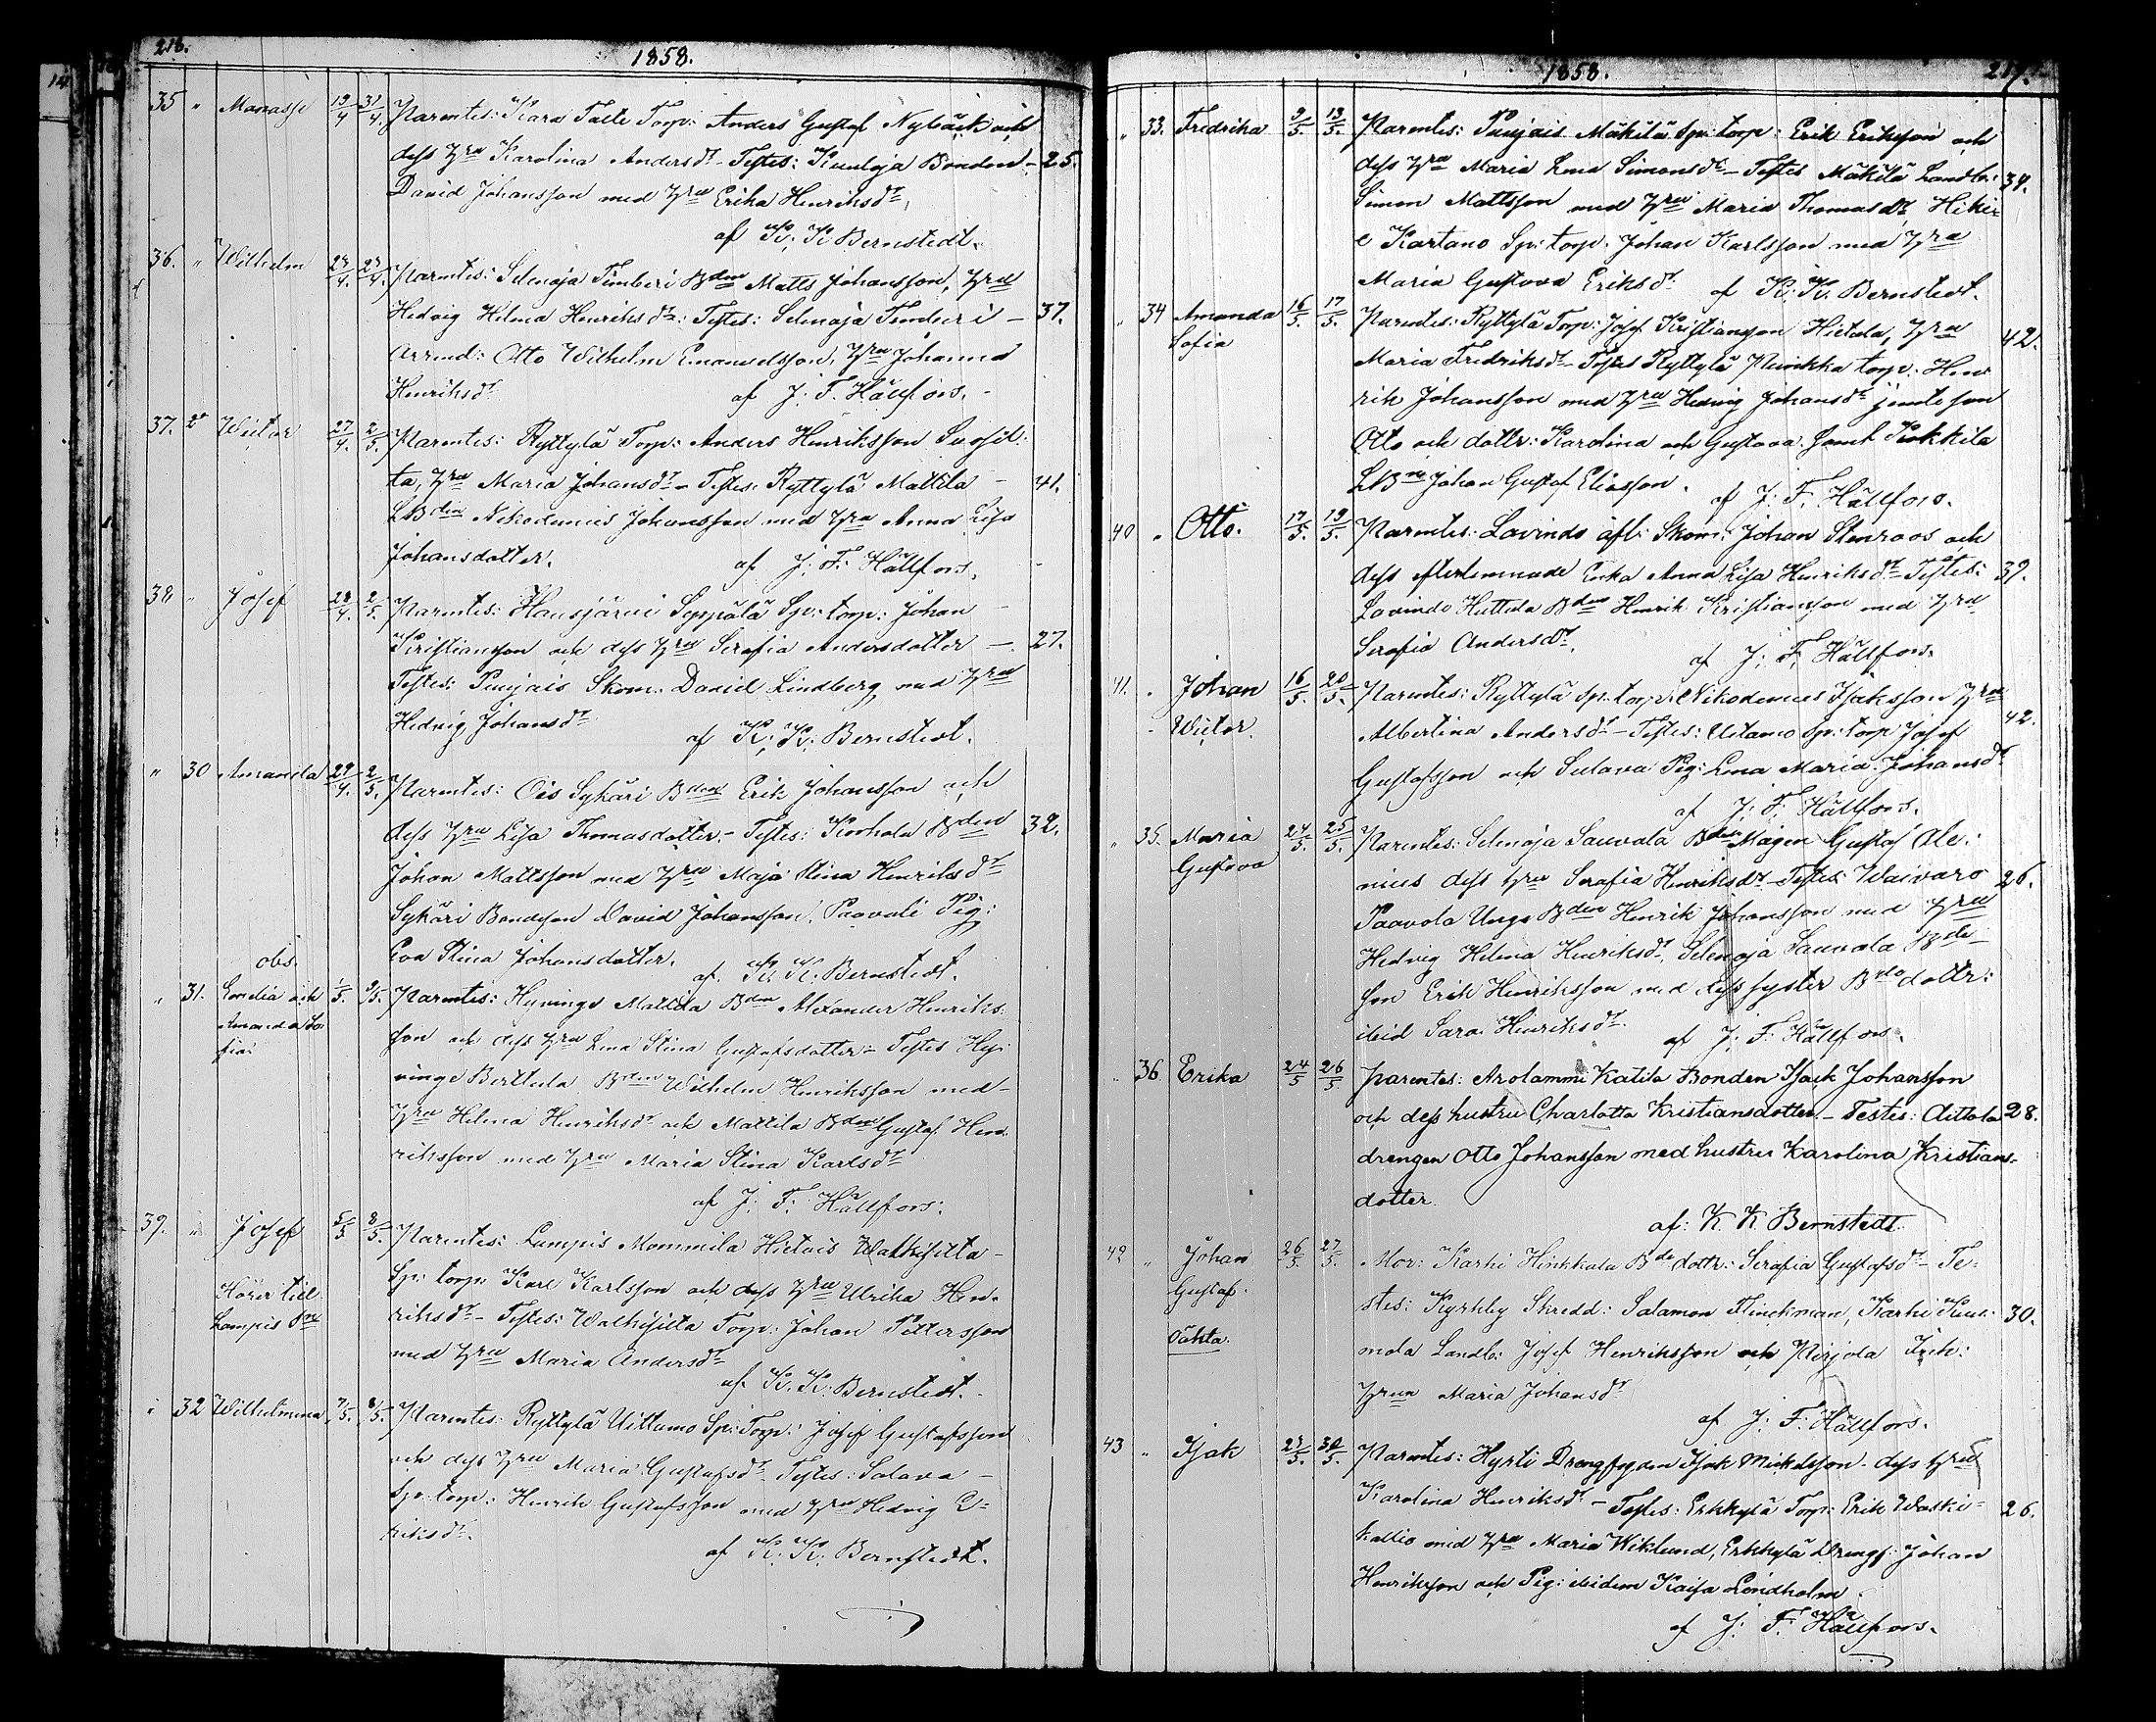 216.
1858.
35 " Manasse 19/4 31/4. Parentes: Kara Torp: Anders Gustaf Nybäck och
dess hru Karolina Andersdr - Testes: Bonden - 25.
David Johansson med hru Erika Henriksdr,
af K: K Bernstedt.
36. " Wilhelm 4. 4. Parentes: Selenoja Timberi Bden Matts Johansson, hru
Hedvig Helena Henriksdr: Testes: Selenoja Timberi - 37.
Arrend: Otto Wilhelm Emanuelsson, hru Johanna
Henriksdr af J: F. Hällfors. -
37. Victor 27/4. 2/5. Parentes: Ryttylä Torp: Anders Henriksson
ta, hru Maria Johansdr - Testes: Ryttylä Mattila - 41.
LBden Nikodemus Johansson med hru Anna Lisa
Johansdotter. af J: F: Hällfors.
38. " Josef 28/4. 2/5. Parentes: Hausjärvi Seppälä Sp: torp: Johan
Kristiansson och dess hru Serafia Andersdotter - 27.
Testes: Punjais Skom: David Lindberg med hru
Hedvig Johansdr af K: K: Bernstedt.
" 30 Amanda 29/4. 2/5. Parentes: Ois Sykäri Bden Erik Johansson och
dess hru Lisa Thomasdotter - Testes: Korhola Bden 32.
Johan Mattsson med hru Maja Stina Henriksdr
Sykäri Bondeson David Johansson, Paavoli Pig:
Eva Stina Johansdotter. af K. K. Bernstedt.
obs.
" 31. Emelia och 1/5. 2/5. Parentes: Hyvinge Mattila Bden Alexander Henriks
Amanda So son och dess hru Lena Stina Gustafsdotter - Testes Hy:
fia: vinge Berttula Bden Wilhelm Henriksson med -
hru Helena Henriksdr och Mattila Bden Gustaf Hen
riksson med hru Maria Stina Karlsdr
af J: F. Hällfors:
39. " Josef 5/5 8/5. Parentes: Lampis Mommila Hietois Walkisilta -
Sp: torp: Karl Karlsson och dess hru Ulrika Hen-
Hörer till riksdr - Testes: Walkisilta Torp: Johan Pettersson
Lampis med hru Maria Andersdr
af K. K: Bernstedt.
" 32 Wilhelmina 7/5. 8/5. Parentes: Ryttylä Uittamo Sp: Torp: Josef Gustafsson
och dess hru Maria Gustafsdr Testes: Salava -
Sp: torp: Henrik Gustafsson med hru Hedvig E-
riksdr. af K: K: Bernstedt.
1858. 217.
" 33. Fredrika 9/5. 13/5. Parentes: Punjais Mäkilä Sp: torp: Erik Eriksson och
dess hru Maria Lena Simonsdr - Testes Mäkilä Landb: 34.
Simon Mattsson med hru Maria Thomasdr Hikiä
e Kartano Sp: torp: Johan Karlsson med hru
Maria Gustava Eriksdr af K: K: Bernstedt.
" 34 Amanda 16/5. 17/5. Parentes: Ryttylä Torp: Josef Kristiansson Hietala, hru
Sofia Maria Fredriksdr - Testes Ryttylä torp: Hen 42.
rik Johansson med hru Hedvig Johansdr jemte son
Otto och dottr: Karolina och Gustava samt
Johan Gustaf Eliasson. af J: F: Hällfors.
40 " Otto. 17/5. 19/5. Parentes: Lavinds afl: Skom: Johan Stenroos och
dess efterlemnade Enka Anna Lisa Henriksdr - Testes: 39.
Lavinds Huttula Bden Henrik Kristiansson med hru
Serafia Andersdr. af J: F: Hällfors.
41. " Johan 16/5. 20/5. Parentes: Ryttylä Sp: torp: Nikodemus Isaksson hru
- Wictor. Albertina Andersdr - Testes: Uitamo Sp: torp Josef 42.
Gustafsson och Sulava Pig: Lena Maria Johansdr
af J: F: Hällfors.
" 35. Maria 24/5. 25/5. Parentes: Selenoja Sauvala Bden Mågen Gustaf Ale:
Gustava nius dess hru Serafia Henriksdr - Testes: Waivaro 26.
Paavola Unga Bden Henrik Johansson med hru
Hedvig Helena Henriksdr, Selenoja Sauvala Bde-
son Erik Henriksson med dess syster Bde dottr:
ibid Sara Henriksdr. af J: F: Hällfors.
" 36 Erika 24/5 26/5 parentes: Arolammi Katila Bonden Isack Johansson
och dess hustru Charlotta Kristiansdotter - Testes: Aittola 28.
drengen Otto Johansson med hustru Karolina Kristians-
dotter.
af: K K Bernstedt
42 " Johan 26/5. 27/5. Mor: Karhi Hinkkala Bde dottr: Serafia Gustafsdr - Te-
Gustaf. stes: Kyrkby Skredd: Salamon Flinckman, Karhi 30.
oäkta. mola Landb: Josef Henriksson och Pirjola Inh:
hrun Maria Johansdr
af J: F: Hällfors.
43 " Isak 5. 30/5. Parentes: Hyrli Drengfogden Isak Mickelsson - dess hru
Karolina Henriksdr - Testes: Erkkylä Torp: Erik Waski- 26.
kallio med hru Maria Wiklund, Erkkylä Drengf: Johan
Henriksson och Pig: ibidem Kaisa Lindholm.
af J: F: Hällfors.